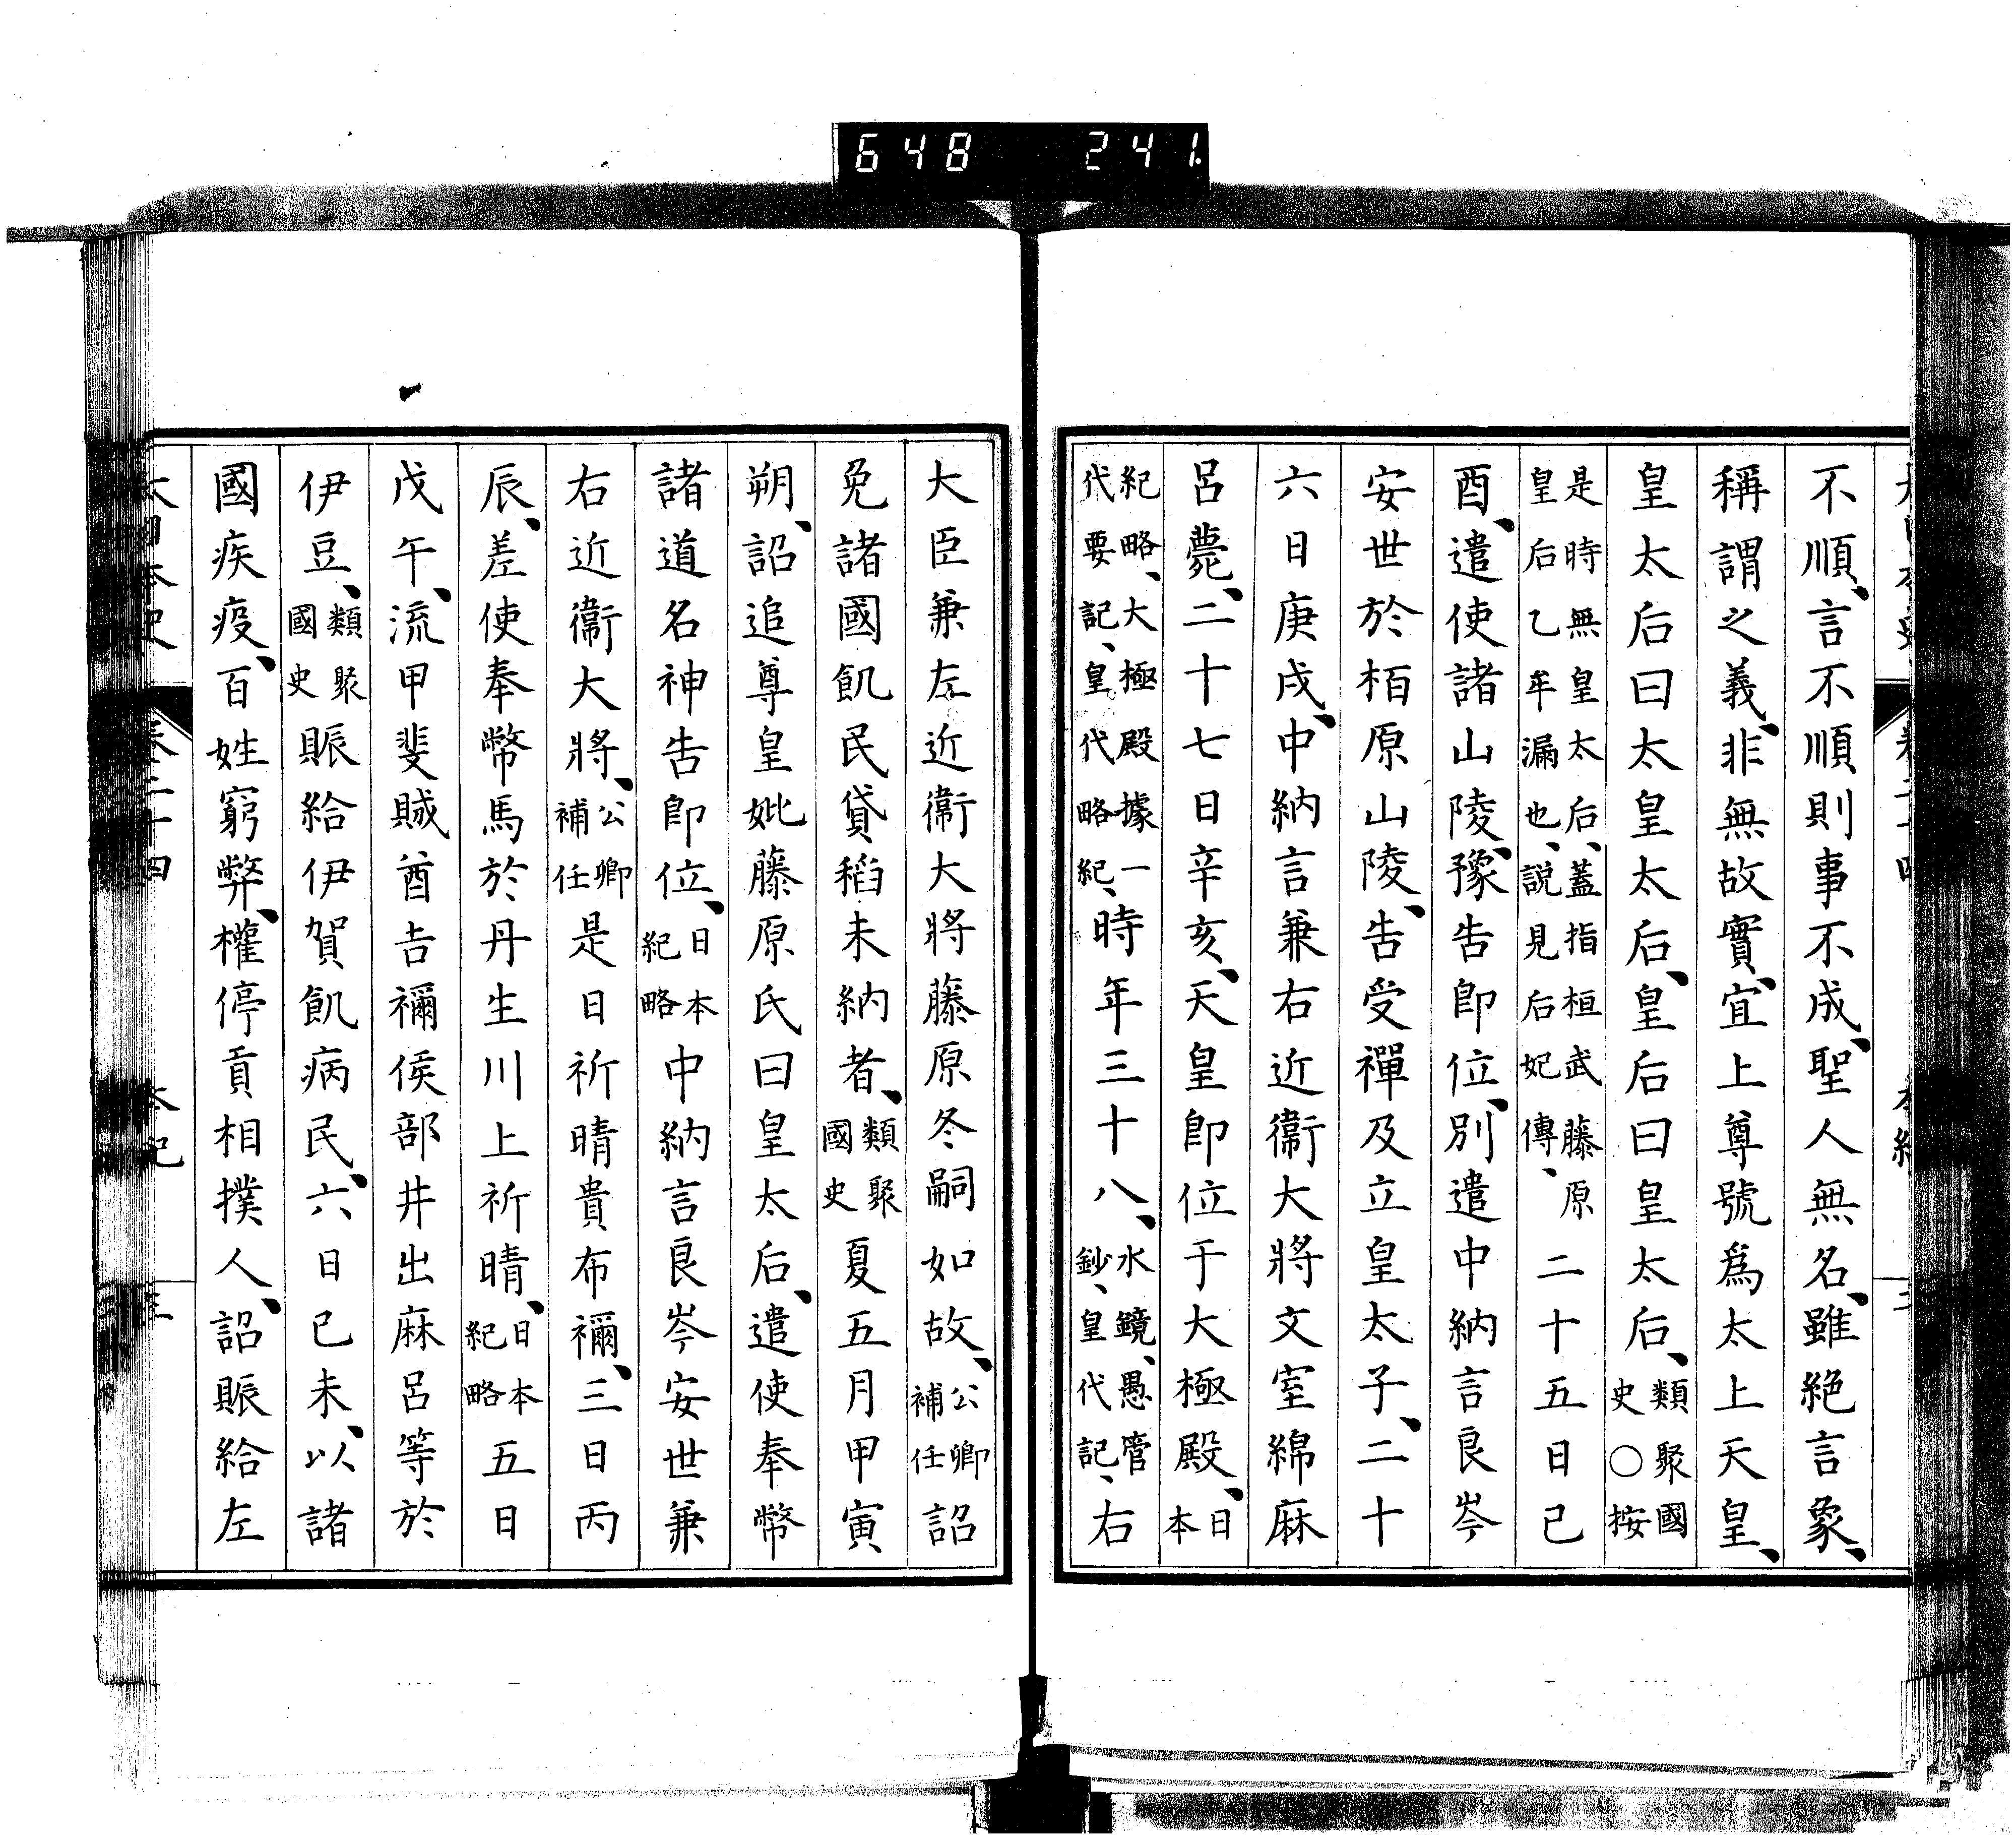 648 241
不順、言不順則事不成、聖人無名、雖絶言象、
稱謂之義、非無故實、宜上尊號爲太上天皇、
皇太后曰太皇太后、皇后曰皇太后、類聚國史○按
是時無皇太后、蓋指桓武藤原皇后乙牟漏也、説見后妃傳、二十五日己
酉、遣使諸山陵、豫告即位、別遣中納言良岑
安世於栢原山陵、告受禪及立皇太子、二十
六日庚戌、中納言兼右近衞大將文室綿麻
呂薨、二十七日辛亥、天皇即位于大極殿、日本
紀略、大極殿據一代要記、皇代略紀、時年三十八、水鏡、愚管鈔、皇代記、右
大臣兼左近衞大將藤原冬嗣如故、公卿補任詔
免諸國飢民貸稻未納者、類聚國史夏五月甲寅
朔、詔追尊皇妣藤原氏曰皇太后、遣使奉幣
諸道名神告即位、日本紀略中納言良岑安世兼
右近衞大將、公卿補任是日祈晴貴布禰、三日丙
辰、差使奉幣馬於丹生川上祈晴、日本紀略五日
戊午、流甲斐賊酋吉禰侯部井出麻呂等於
伊豆、類聚國史賑給伊賀飢病民、六日己未、以諸
國疾疫、百姓窮弊、權停貢相撲人、詔賑給左
大日本史 卷二十四 本紀 三